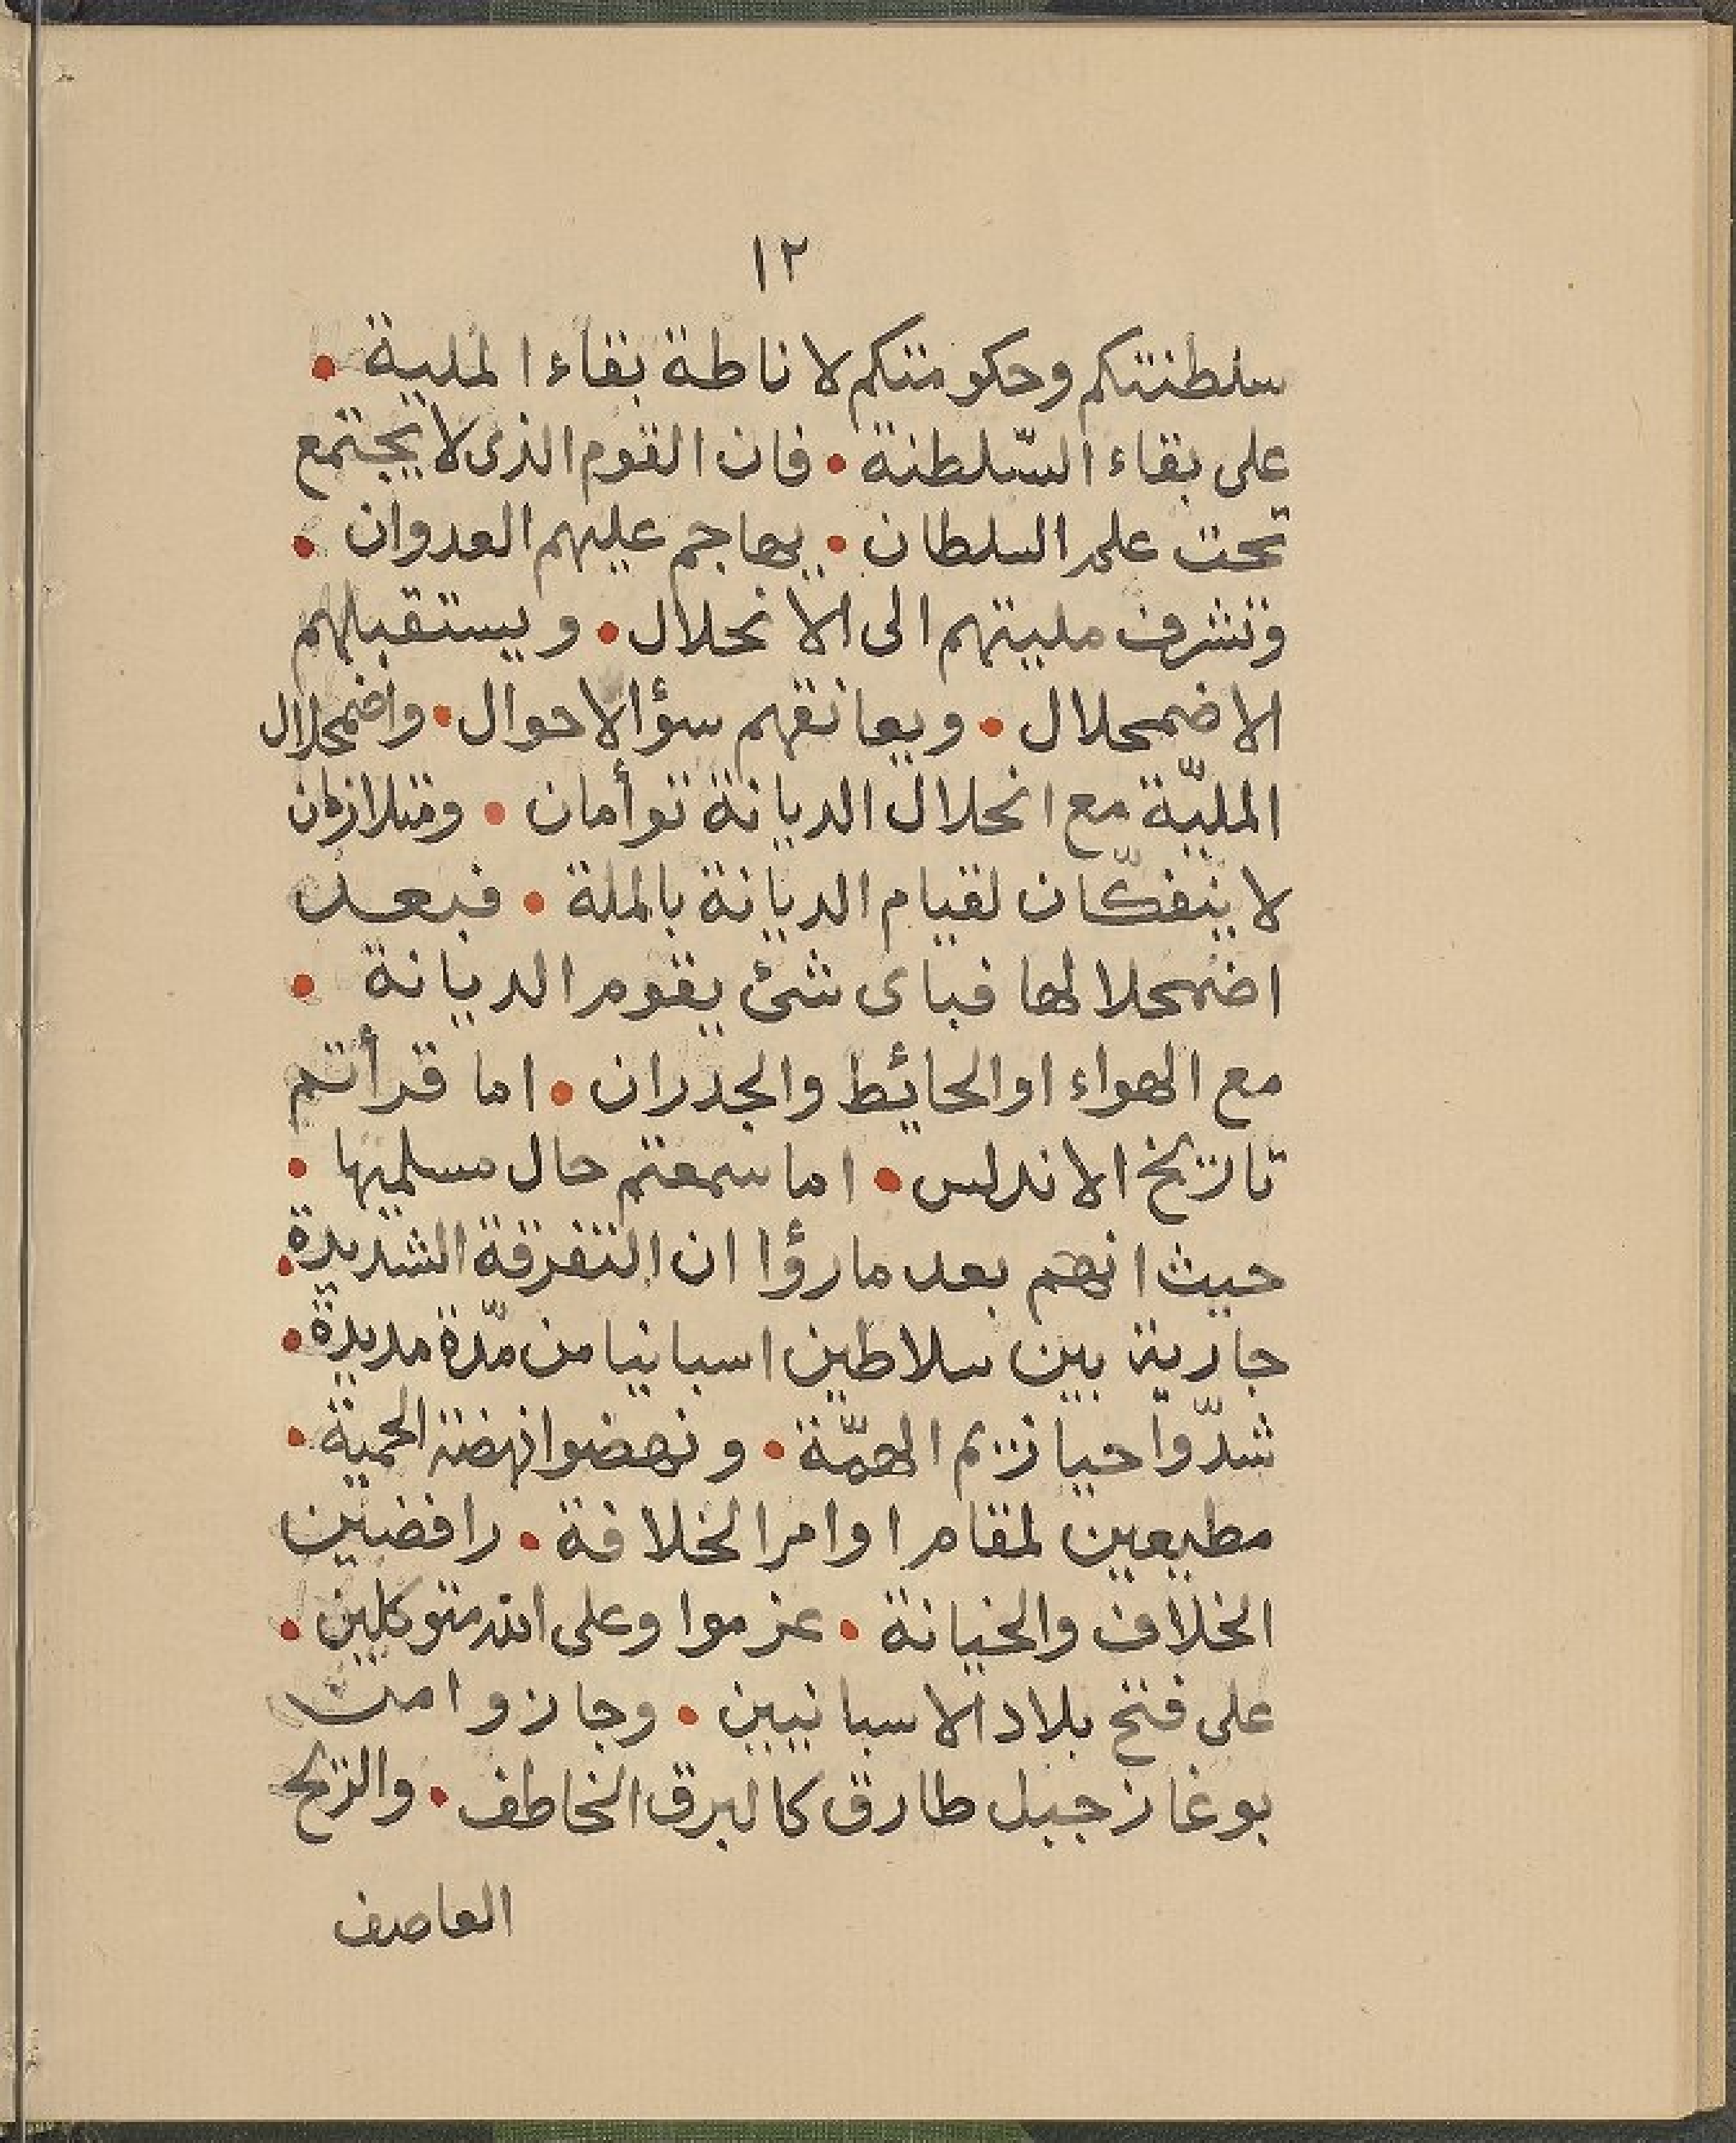 ١٢
سلطنتكم وحكومتكم لاناطة بقاء الملية •
على بقاء السّلطنة • فان القوم الذى لا يجتمع
تحت علم السلطان • يهاجم عليهم العدوان •
وتشرف مليتهم الى الانحلال • ويستقبلهم
الاضمحلال • ويعانقهم سؤالاحوال • واضمحلال
المليّة مع انحلال الديانة توأمان • ومتلازمان
لا ينفكّان لقيام الديانة بالملة • فبعد
اضمحلالها فباى شئ يقوم الديانة •
مع الهواء او الحائط والجدران • اما قرأتم
تاريخ الاندلس • اما سمعتم حال مسلميها •
حيث انهم بعد مارؤا ان التفرقة الشديدة •
جارية بين سلاطين اسبانيا من مدّة مديدة •
شدّوا حيازيم الهمّة • ونهضوا نهضة الحمية •
مطيعين لمقام اوامر الخلافة • رافضين
الخلاف والخيانة • عزموا وعلى الله متوكلين •
على فتح بلاد الاسبانيين • وجازوا من
بوغاز جبل طارق كالبرق الخاطف • والريح
العاصف